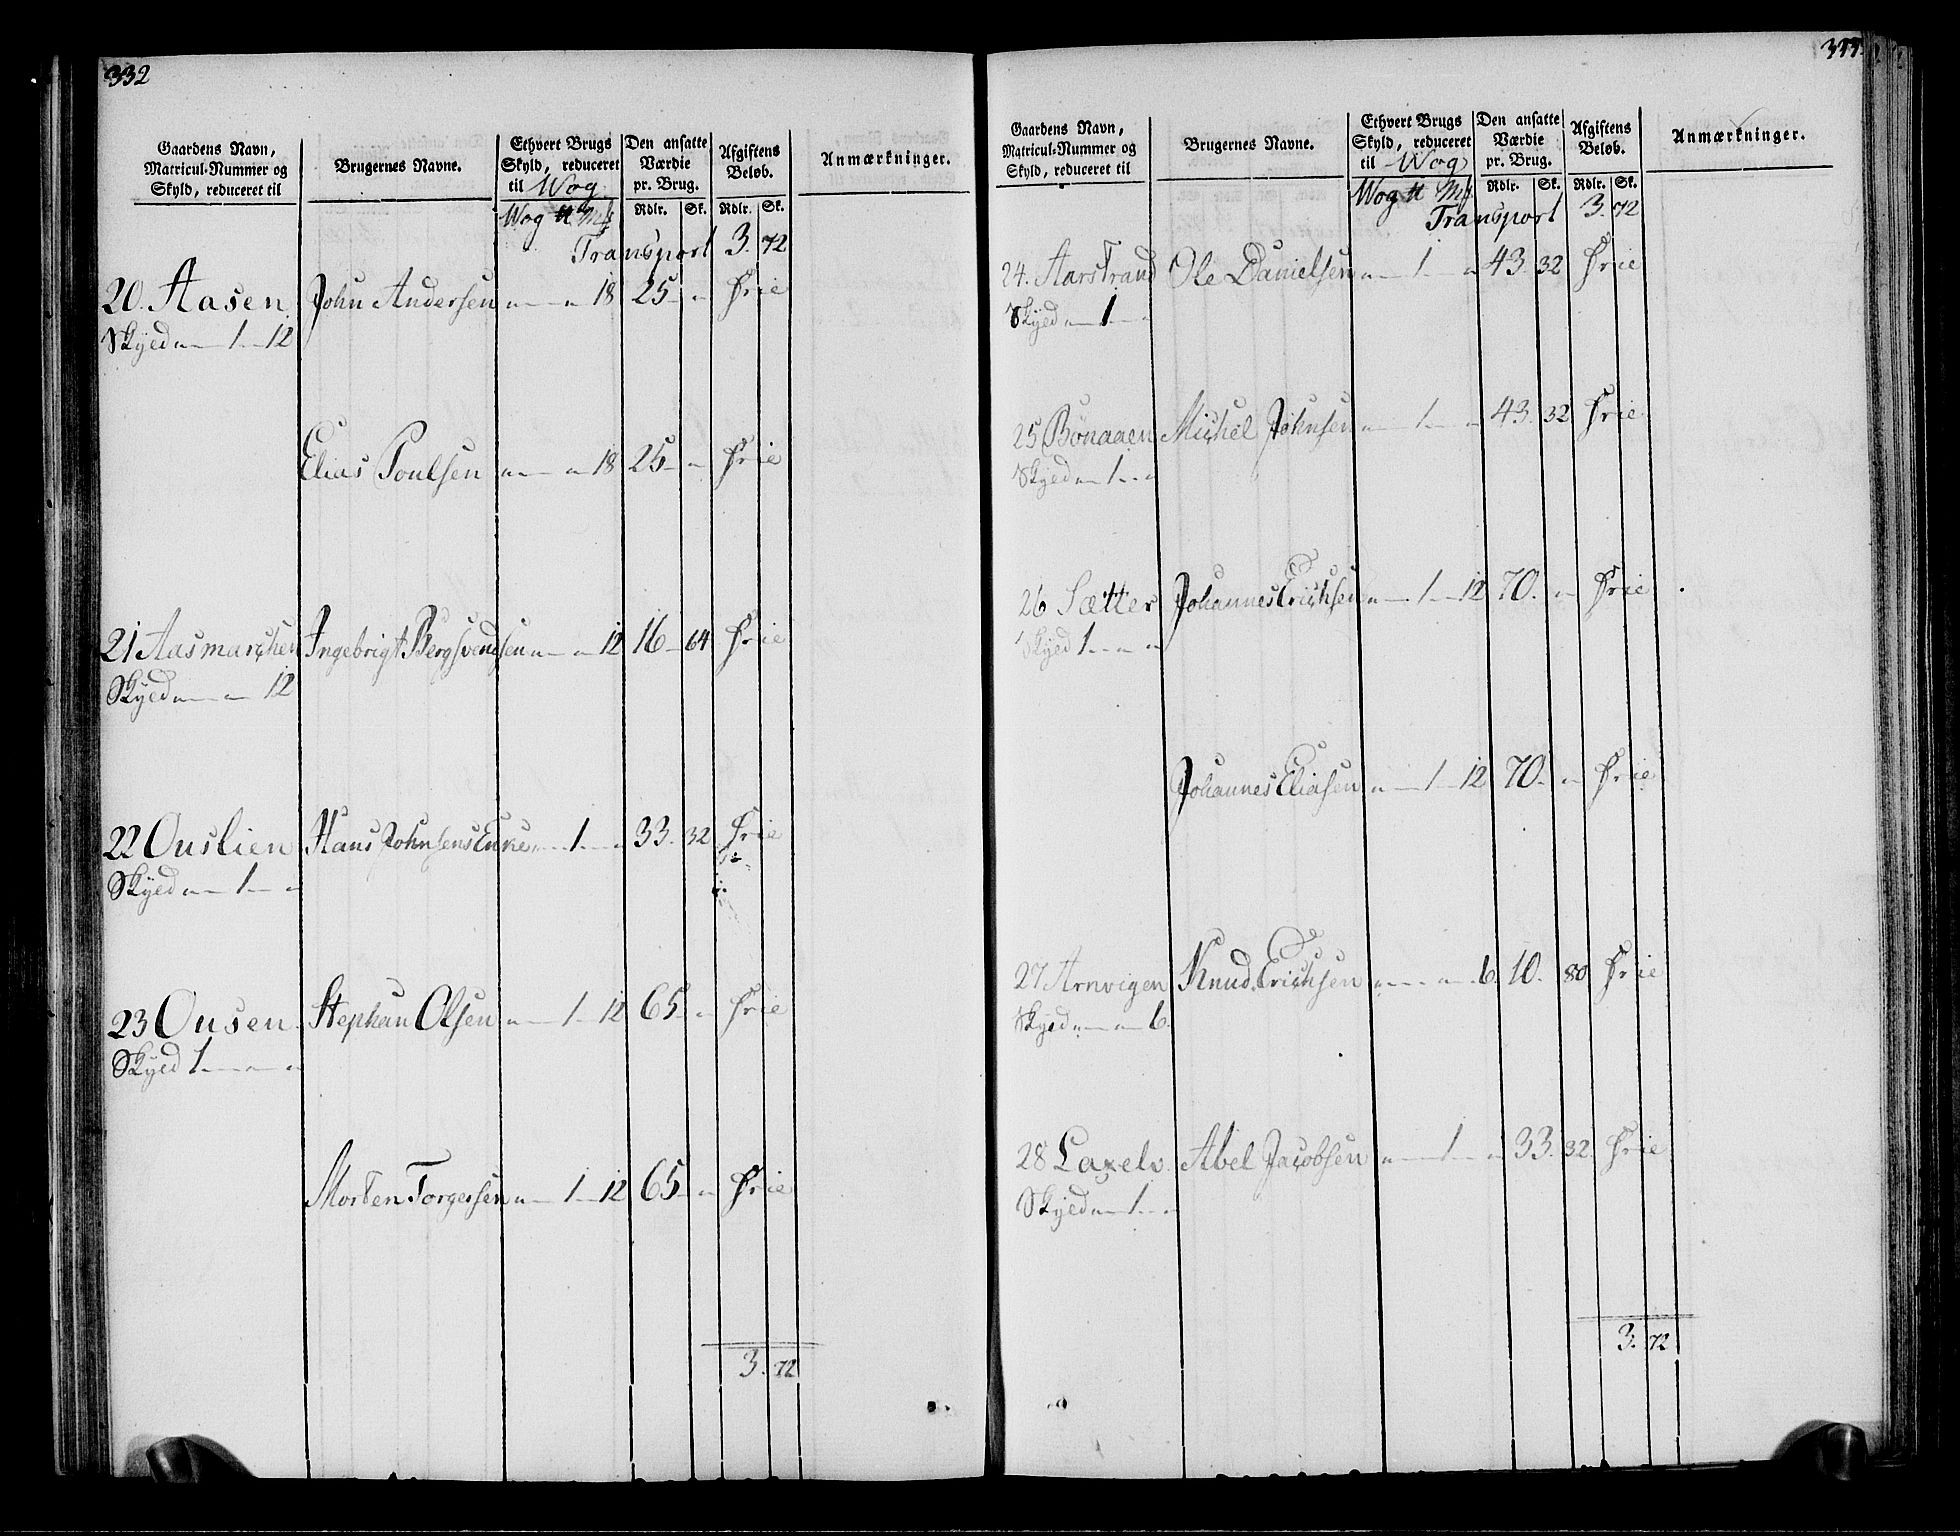 332
Gaardens Navn, Matricul-Nummer og Skyld, reduceret til
Brugernes Navne.
Ethvert Brugs Skyld, reduceret til Wog
Den ansatte Værdie pr. Brug.
Afgiftens Beløb.
Anmærkninger.
Wog ℔ Mk Rdlr. Sk. Rdlr. Sk.
Transport 3. 72
20. Aasen John Andersen " — " 18 25 — " Frie
Skyld " — 1 — 12
Elias Poulsen " — " 18 25 — " Frie
21 Aasmarchen Ingebrigt Bergsvendsen " — " 12 16 — 64 Frie
Skyld " — " — 12
22 Ouslien Hans Johnsens Enke " — 1 — " 33. 32 Frie
Skyld " — 1 — "
23 Ousen Stephan Olsen " — 1 — 12 65 — " Frie
Skyld 1 — " — "
Morten Torgersen " — 1 — 12 65 — " Frie
3. 72
Gaardens Navn, Matricul-Nummer og Skyld, reduceret til
Brugernes Navne.
Ethvert Brugs Skyld, reduceret til Wog
Den ansatte Værdie pr. Brug.
Afgiftens Beløb.
Anmærkninger.
Wog ℔ Mk Rdlr. Sk. Rdlr. Sk.
Transport 3. 72
24. Aarstrand Ole Danielsen " — 1 — " 43. 32 Frie
Skyld " — 1 — "
25 Bonaaen Michel Johnsen " — 1 — " 43. 32 Frie
Skyld " — 1 — "
26 Sætter Johannes Erichsen " — 1 — 12 70. — " Frie
Skyld 1 — " — "
Johannes Eliasen " — 1 — 12 70. — " Frie
27 Arnvigen Knud Erichsen " — " — 6. 10. 80 Frie
Skyld " — " — 6.
28 Laxelv. Abel Jacobsen " — 1 — " 33. 32. Frie
Skyld " — 1 — "
3. 72